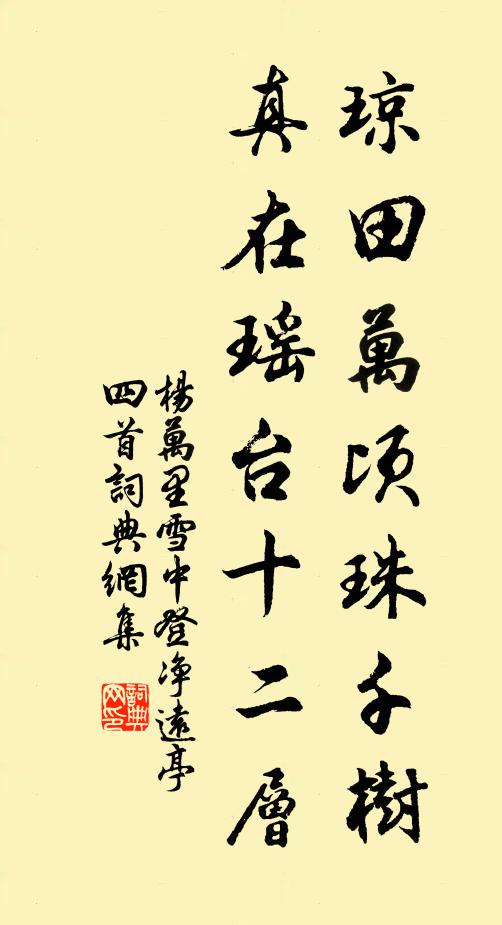 琼田萬頃珠千樹
真在瑶台十二層
楊萬里雪中登净遠亭
四首詞典網集
詞典网印